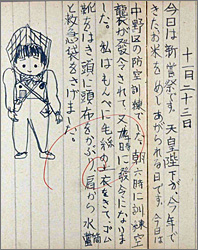 十一月二十三日
今日は新嘗祭です。天皇陛下が今年で
きたお米をめしあがられる日です。今日は
中野区の防空訓練でした。朝六時に訓練空
襲が発令されて又
時に發令になりま
した。私はもんぺに毛絲の上衣をきて、ゴム
靴をはき頭に頭巾をかぶり、肩から水筒
と救急袋をさげました。